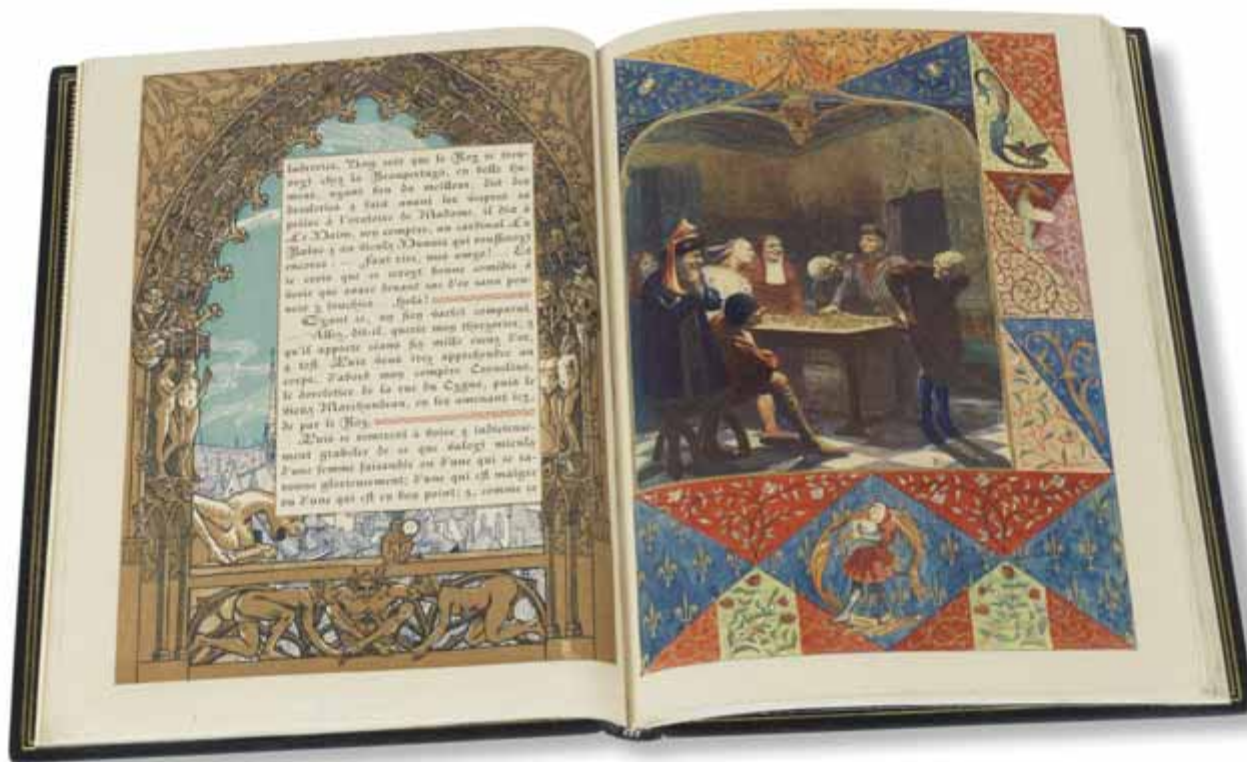 laderries. soir que le Roy se trou-
voyt chez la Beaupertuys, en belle hu-
meur, ayant beu du meilleur, dict des
drosleries & faict avant les vespres sa
prière à l'oratoire de Madame, il dit à
Le Daim, son compère, au cardinal La
Balue & au vieulx Dunois qui roussinoyt
encores : — Faut rire, mes amys!... Et
ie crois que ce seroyt bonne comédie à
veoir que avare devant sac d'or sans pou-
voir y touchier... Holà!
Oyant ce, ung sien varlet comparut.
Allez, dit-il, querir mon threzorier, &
qu'il apporte céans six mille escuz d'or,
& tost. Puis vous irez apprehender au
corps, d'abord mon compère Cornelius,
le dorelotier de la rue du Cygne, puis le
vieux Marchandeau, en les amenant icy,
de par le Roy.
Puis se remirent à boire & iudicieuse-
ment grabeler de ce que valoyt mieulx
d'une femme faisandée ou d'une qui se sa-
vonne glorieusement; d'une qui est maigre
ou d'une qui est en bon point; &, comme ce